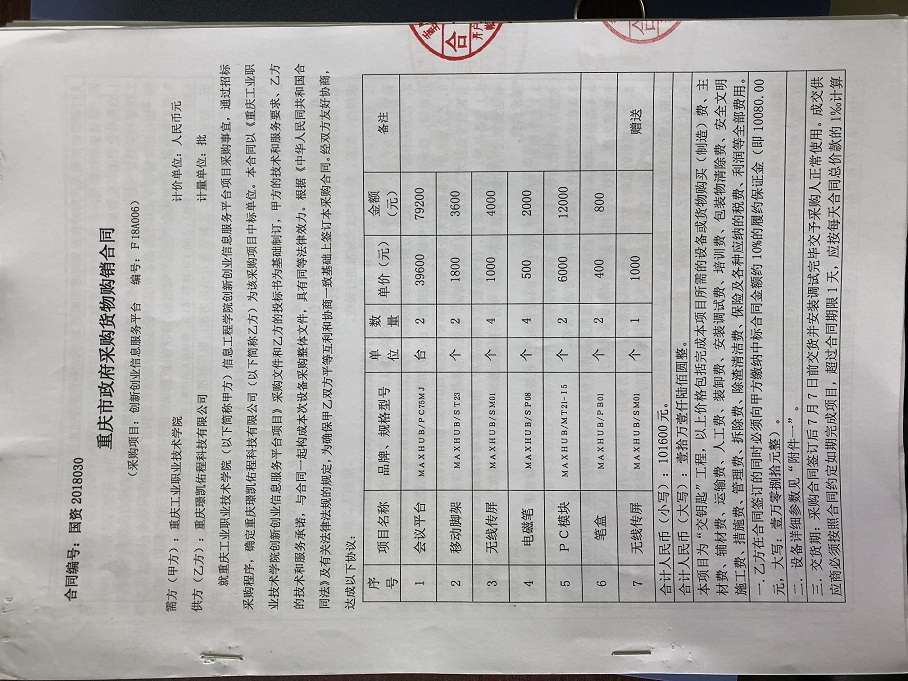 合同编号：国资 2018030
重庆市政府采购货物购销合同
（采购项目：创新创业信息服务平台　编号：F18A006）
需方（甲方）：重庆工业职业技术学院　计价单位：人民币元
供方（乙方）：重庆璟凯佑程科技有限公司　计量单位：批
就重庆工业职业技术学院（以下简称甲方）信息工程学院创新创业信息服务平台项目采购事宜，通过招标
采购程序，确定重庆璟凯佑程科技有限公司（以下简称乙方）为该采购项目中标单位。本合同以《重庆工业职
业技术学院创新创业信息服务平台项目》采购文件和乙方的投标书为基础制订，甲方的技术和服务要求、乙方
的技术和服务承诺，与合同一起构成本次设备采购整体文件，具有同等法律效力。根据《中华人民共和国合
同法》及有关法律法规的规定，为确保甲乙双方平等互利和协商一致基础上签订本采购合同。经双方友好协商，
达成以下协议：
序号　项目名称　品牌、规格型号　单位　数量　单价（元）　金额（元）　备注
1　会议平台　MAXHUB/PC75MJ　台　2　39600　79200
2　移动脚架　MAXHUB/ST23　个　2　1800　3600
3　无线传屏　MAXHUB/SM01　个　4　1000　4000
4　电磁笔　MAXHUB/SP08　个　4　500　2000
5　PC模块　MAXHUB/MT21-i5　个　2　6000　12000
6　笔盒　MAXHUB/PB01　个　2　400　800
7　无线传屏　MAXHUB/SM01　个　1　1000　赠送
合计人民币（小写）：101600 元。
合计人民币（大写）：壹拾万壹仟陆佰圆整。
本项目为“交钥匙”工程，以上价格包括完成本项目所需的设备或货物购买（制造）费、主
材费、辅材费、运输费、人工费、装卸费、安装调试费、培训费、包装物清除费、安全文明
施工费、措施费、管理费、拆除费、除渣清洁费、保险及各种应纳的税费、利润等全部费用。
一、乙方在合同签订的同时必须向甲方缴纳中标合同金额约 10%的履约保证金（即 10080.00
元，大写：壹万零捌拾元整）。
二、设备详细参数见“附件一”。
三、交货期：采购合同签订后 7 月 7 日前交货并安装调试完毕交予采购人正常使用。成交供
应商必须按照合同约定如期完成项目，超过合同期限 1 天，应按每天合同总价款的 1‰计算